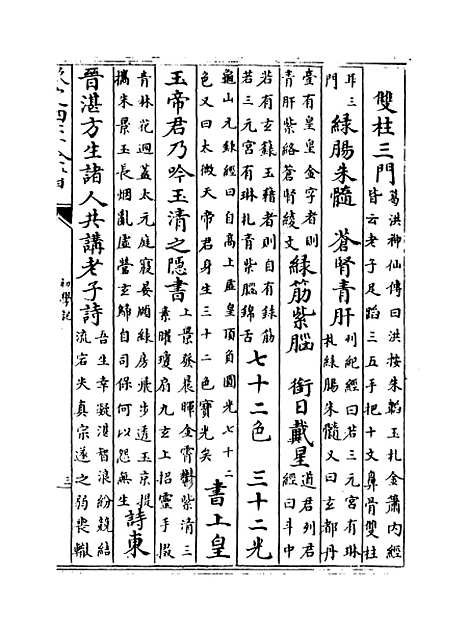 雙柱三門 葛洪神仙傳曰洪按朱韜玉札金簫內經
皆云老子足蹈三五手把十文鼻骨雙柱
耳三
門 綠腸朱髓 蒼腎青肝 列紀經曰若三元宮有琳
札綠腸朱髓又曰玄都丹
臺有皇皇金字者則
青肝紫絡蒼腎綾文 綠筋紫腦 銜日戴星 道君列君
經曰斗中
若有玄籙玉籍者則自有綠筋
若三元宮有琳札青紫腦錦舌 七十二色 三十二光
龜山元錄經曰自高上虛皇頂負圓光七十二
色又曰太微天帝君身生三十二色寶光矣 書上皇
玉帝君乃吟玉清之隱書 上景發晨暉金霄鬱紫清三
素曜瓊扃九玄上招靈手掇
青林花迴蓋太元庭寢晏闕綠房飛步造玉京提
攜朱景玉長烟亂虛營玄歸自司保何以怨無生 詩東
晉湛方生諸人共講老子詩 吾生幸凝湛智浪紛競結
流宕失真宗遂之弱喪轍
初學記
三